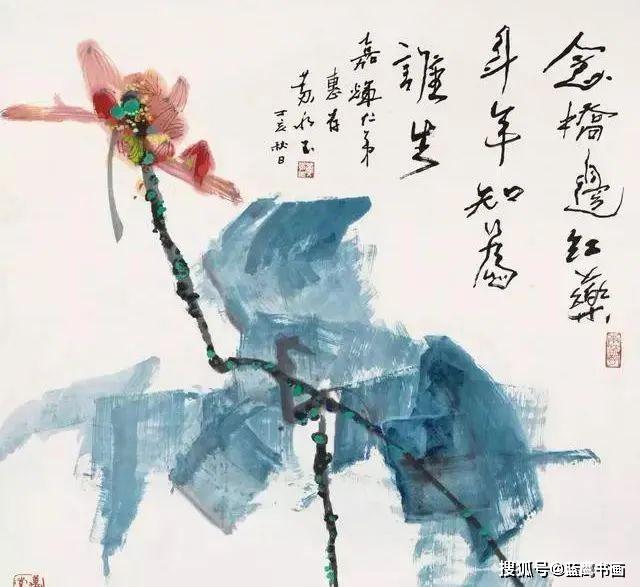 念橋邊紅藥
年年知為
誰生
嘉仁弟
惠存
黃永玉
丁亥秋日
搜狐号@蓝书画